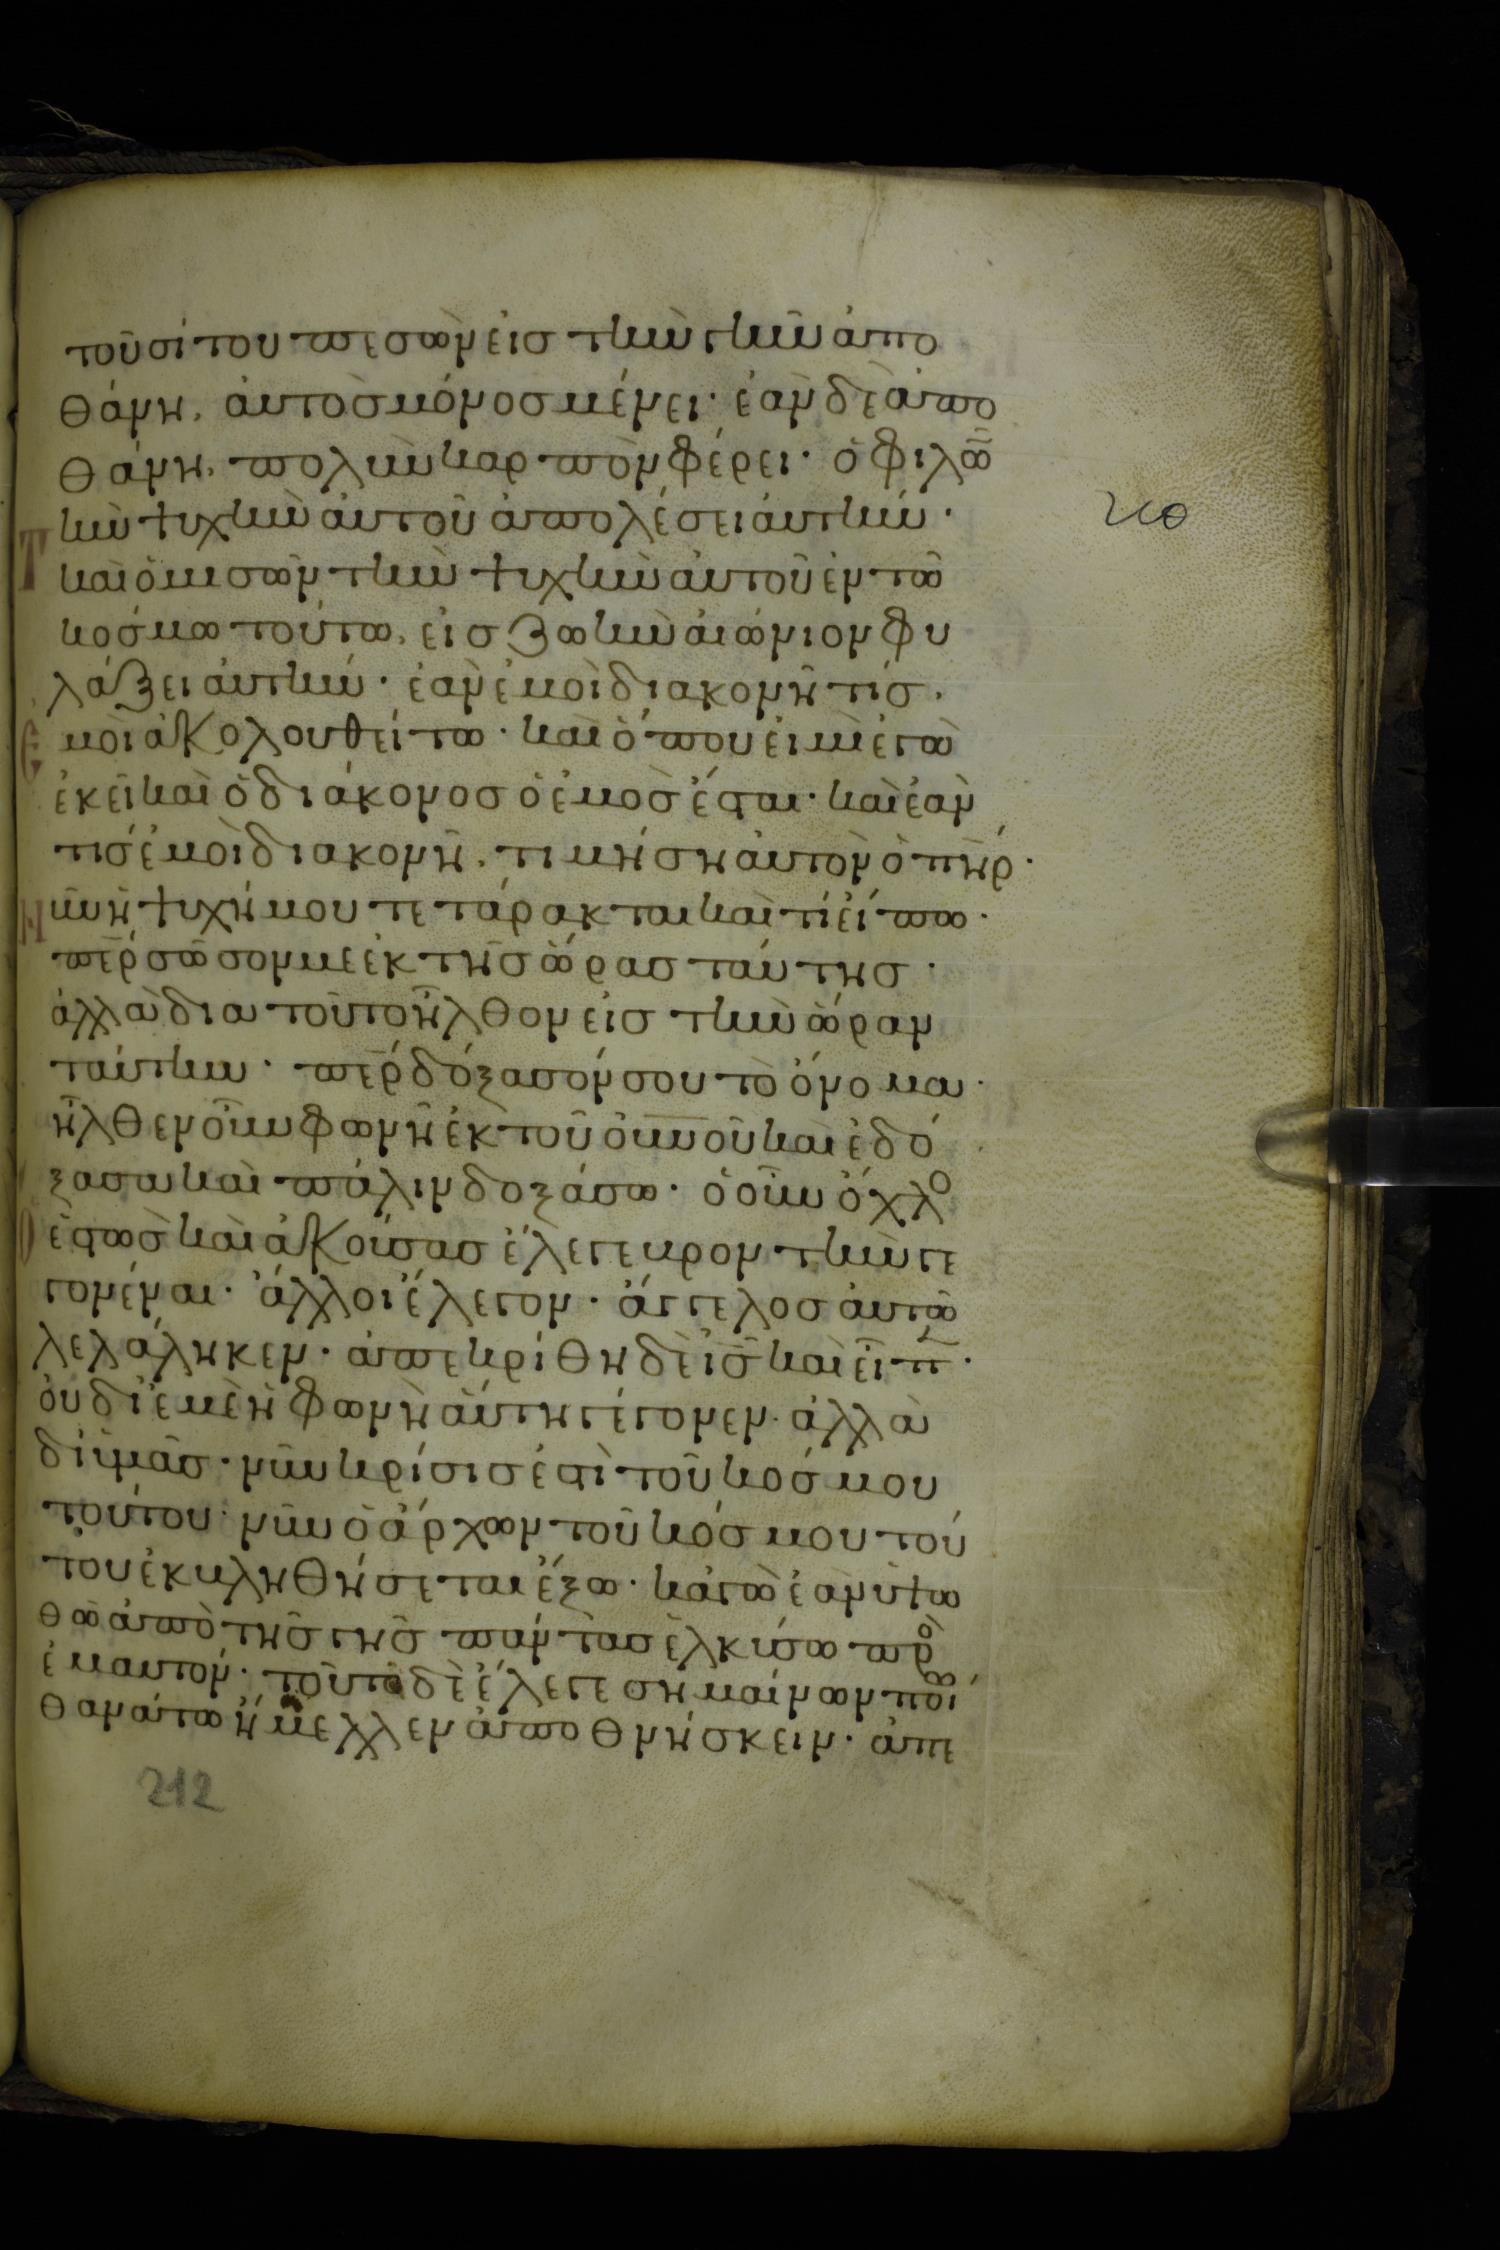 τοῦ σίτου πεσὼν εἰς τὴν γῆν ἀπο
θάνη, αὐτὸς μόνος μένει· ἐὰν δὲ ἀπο
θάνη, πολὺν καρπὸν φέρει· ὁ φιλῶ̅
τὴν ψυχὴν αὐτοῦ ἀπολέσει αὐτήν·
καὶ ὁ μισῶν τὴν ψυχὴν αὐτοῦ ἐν τῶ
κόσμω τούτω, εἰς ζωὴν αἰώνιον φυ
λάξει αὐτήν· ἐὰν ἐμοὶ διακονῆ τίς,
ἐμοὶ ἀκολουθείτω· καὶ ὅπου εἰμὶ ἐγὼ
ἐκεῖ καὶ ὁ διάκονος ὁ ἐμὸς ἔσται· καὶ ἐάν
τις ἐμοὶ διακονῆ, τιμήση αὐτὸν ὁ π̅η̅ρ·
Νῦν ἡ ψυχή μου τετάρακται καὶ τί εἴπω·
π̅ε̅ρ σῶσον με ἐκ τῆς ὥρας ταύτης·
ἀλλὰ δια τοῦτο ἦλθον εἰς τὴν ὥραν
ταύτην· π̅ε̅ρ δόξασόν σου τὸ ὄνομα·
ἦλθεν οὖν φωνὴ ἐκ τοῦ ο̅υ̅ν̅οῦ καὶ ἐδό
ξασα καὶ πάλιν δοξάσω· ὁ οὖν ὄχλο
ἑστὼς καὶ ἀκούσας ἔλεγε βρον τὴν γε
γονέναι· ἄλλοι ἔλεγον· ἄγγελος αὐτῶ
λελάληκεν· ἀπεκρίθη δὲ ι̅ς̅ καὶ εἶπ·
οὐ δι' ἐμὲ ἡ φωνὴ αὕτη γέγονεν· ἀλλὰ
δι' ὑμᾶς· νῦν κρίσις ἐστὶ τοῦ κόσμου
τούτου· νῦν ὁ ἄρχων τοῦ κόσμου τού
του ἐκβληθήσεται ἔξω· κἀγὼ ἐὰν ὑψω
θῶ ἀπὸ τῆς γῆς πάντας ἑλκύσω πρὸ
ἐμαυτόν· τοῦτο δὲ ἔλεγε σημαίνων ποί
θανάτω ἤμελλεν ἀποθνήσκειν· ἀπε
212